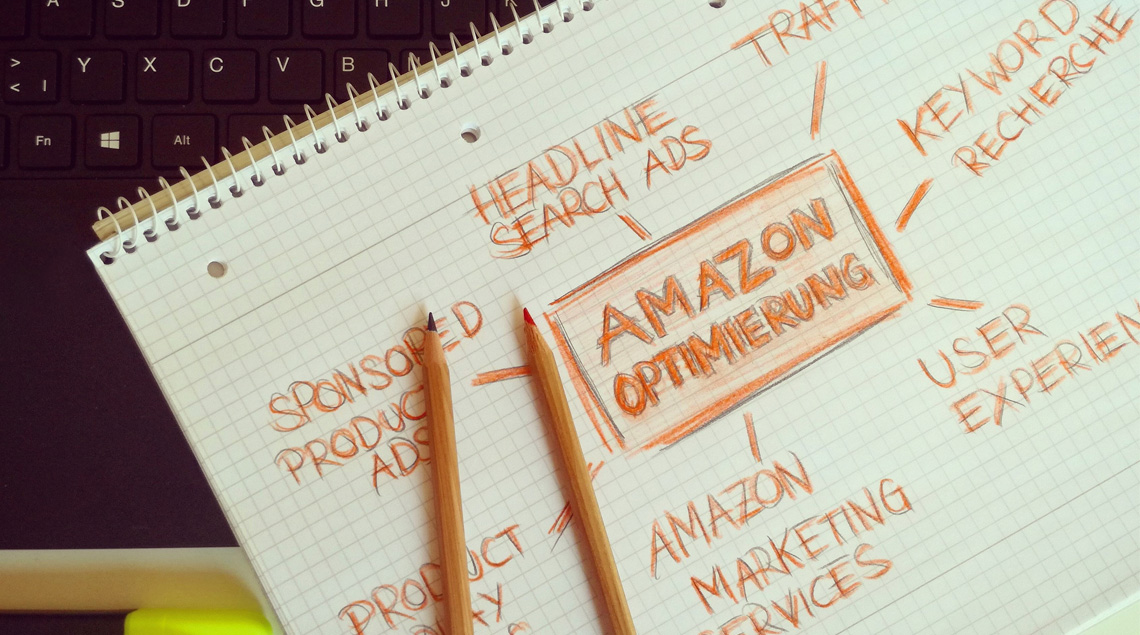 A S D F G H J K
> Y X C V B
< |
Fn Alt
TRAFF
KEYWORD
RECHERCHE
HEADLINE
SEARCH ADS
AMAZON
OPTIMIERUNG
USER
EXPERIEN
SPONSORED
PRODUCT
ADS
AMAZON
MARKETING
SERVICES
PRODUCT